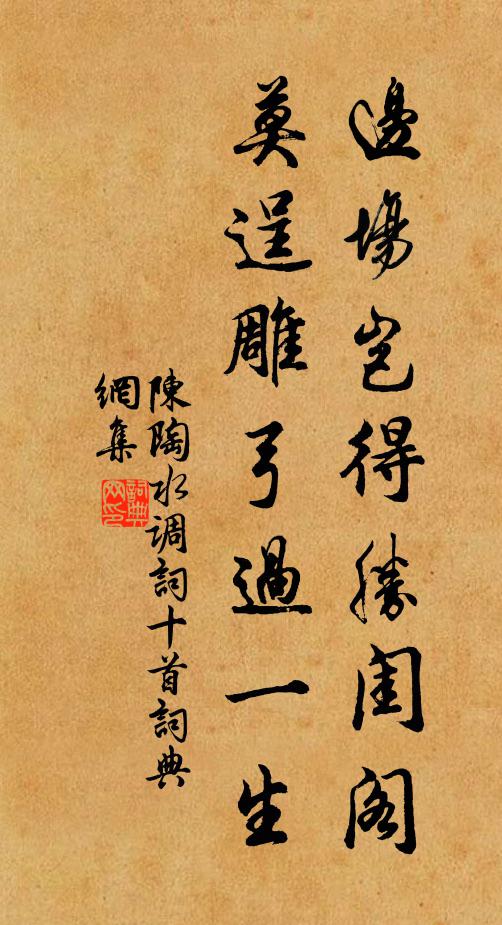 邊場豈得勝閨閣
莫逞雕弓過一生
陳陶水调詞十首詞典
網集
詞典
网印